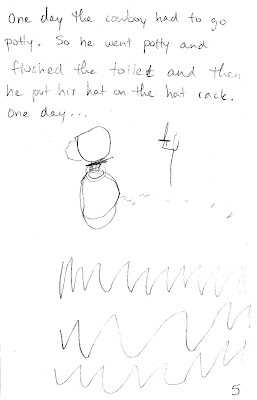 One day the cowboy had to go
potty. So he went potty and
flushed the toilet and then
he put his hat on the hat rack.
One day...
5